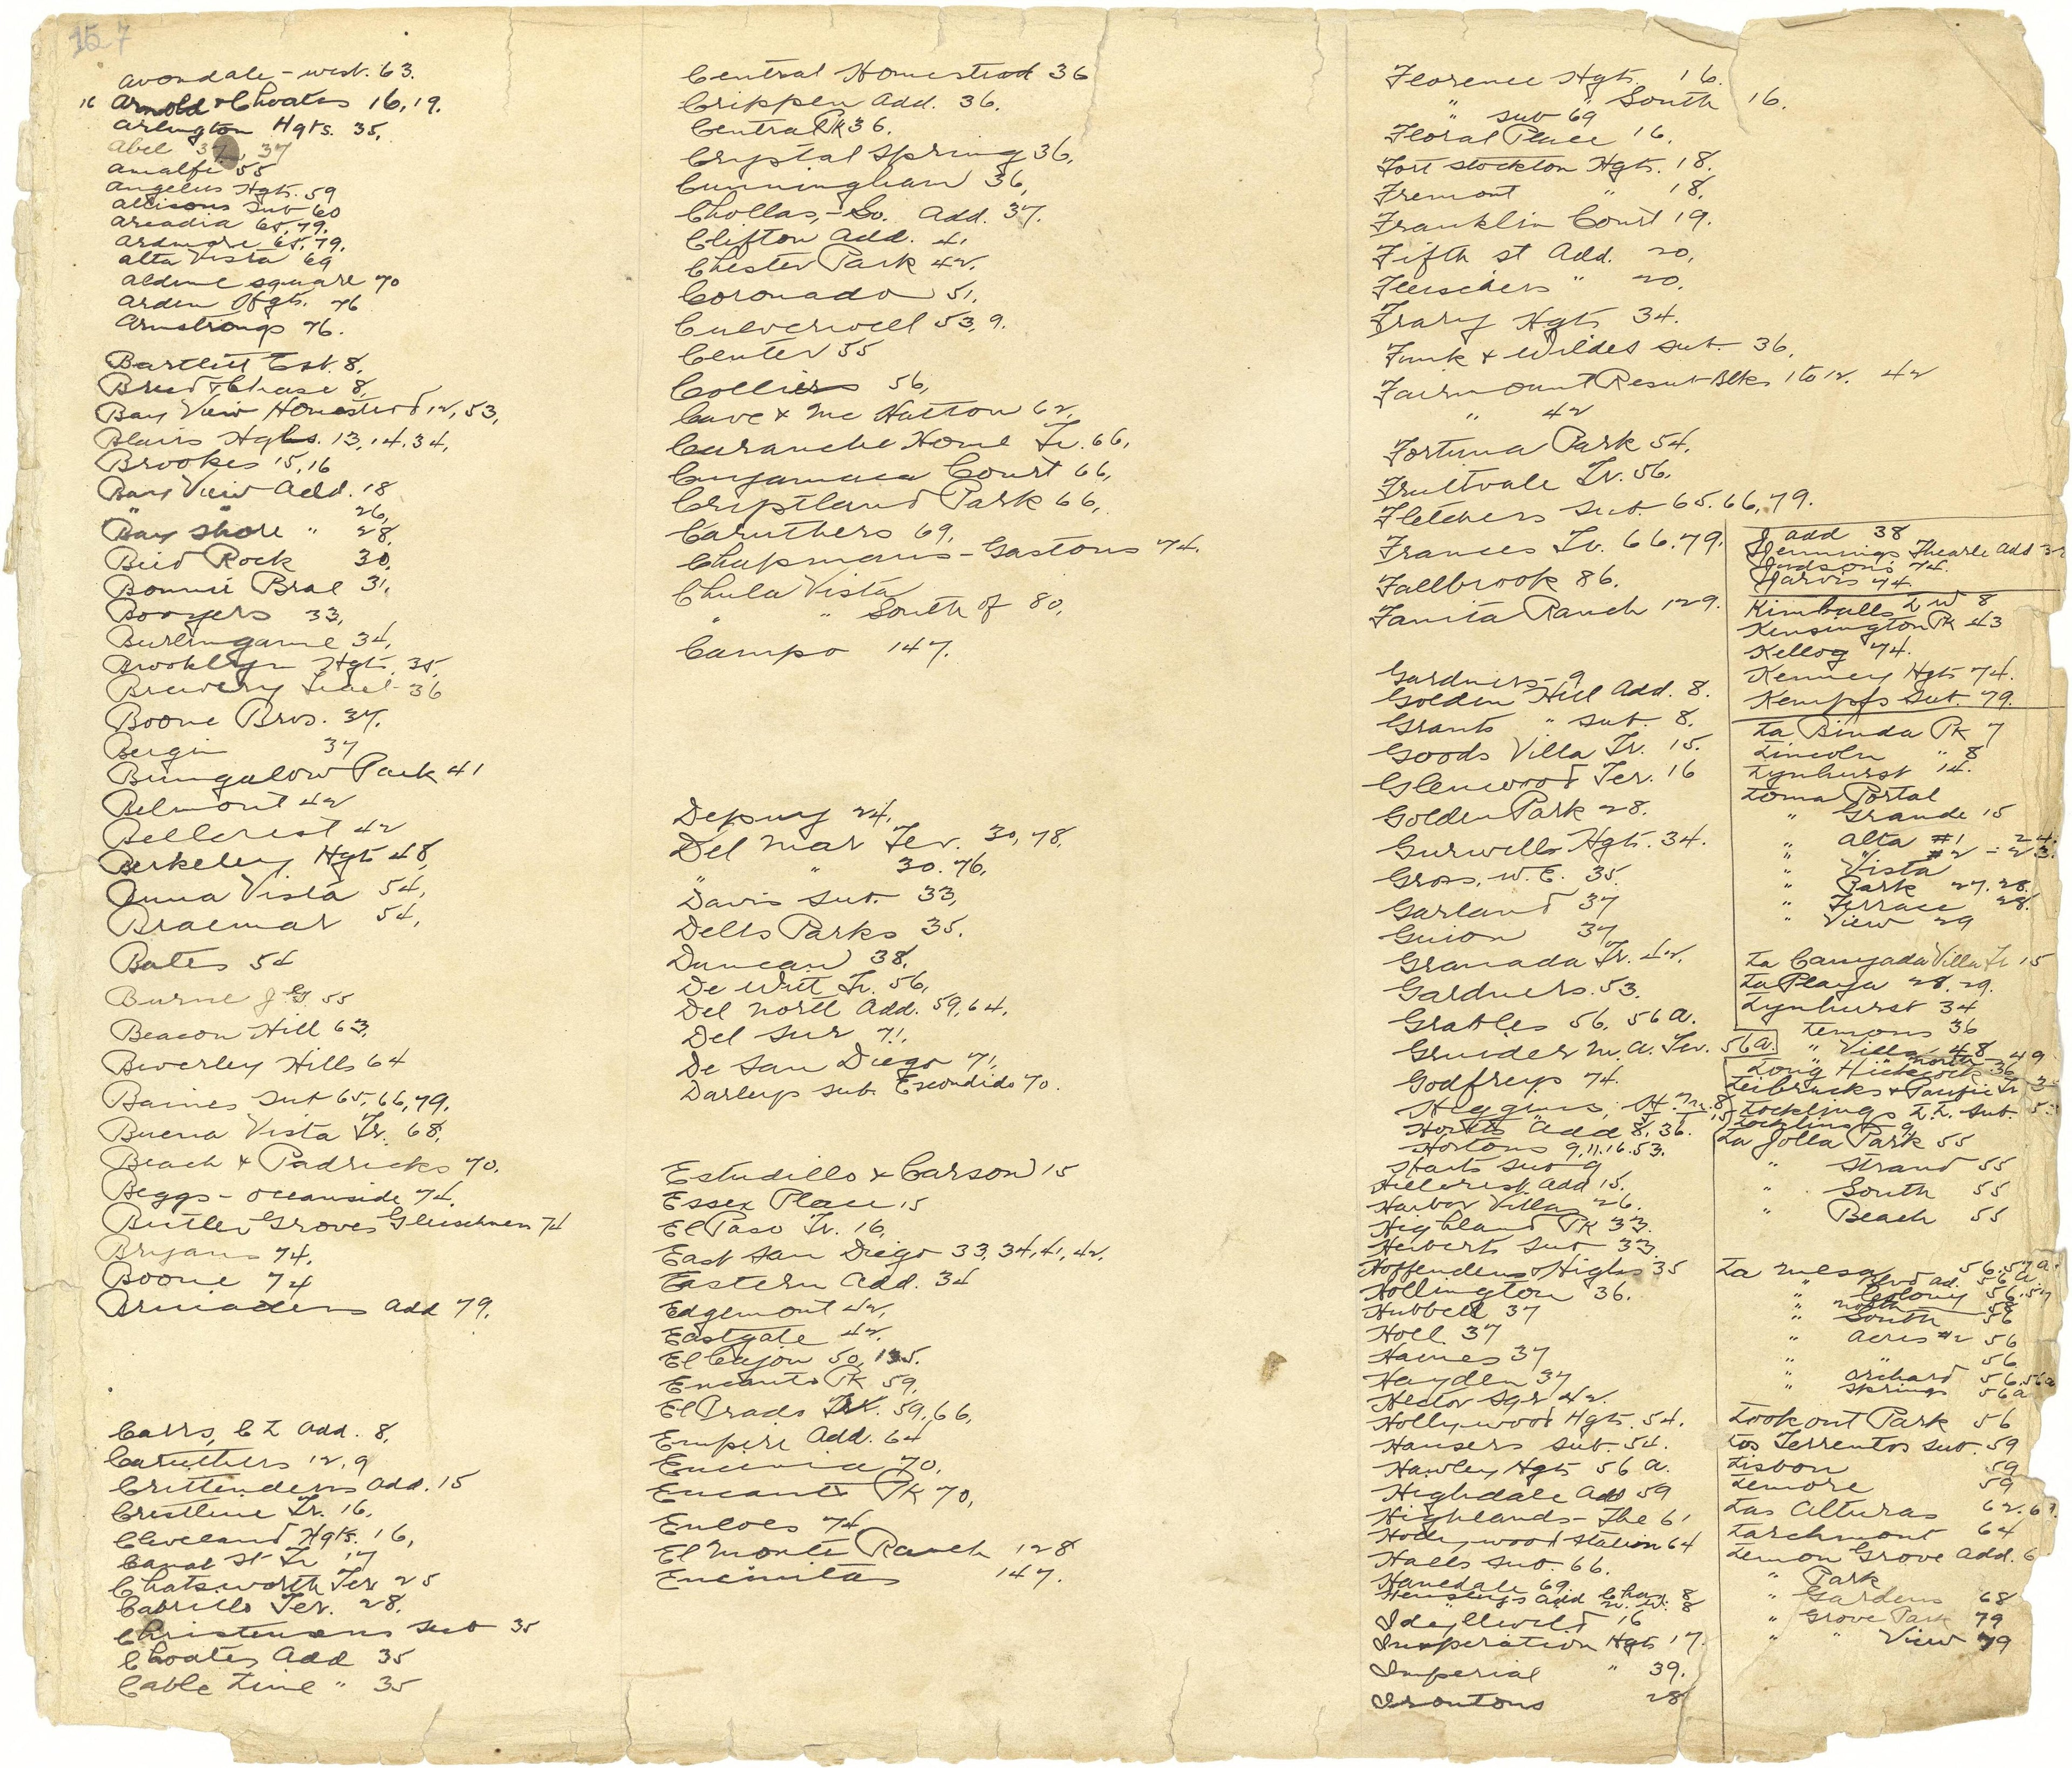 157
Avondale - west. 63.
16 Arnold & Choates 16, 19.
Arlington Hgts. 35,
Abel 37, 37
Amalfi 55
Angelus Hgts. 59
Allisons Sub 60
Arcadia 65, 79.
Ardmore 65, 79.
Alta Vista 69
Aldine square 70
Arden Hgts. 76
Armstrongs 76.
Bartlett Est. 8,
Breed & Chase 8,
Bay View Homestead 12, 53,
Blairs Hghs. 13, 14. 34,
Brookes 15, 16
Bay View Add. 18
" " 26,
Bay Shore " 28,
Bird Rock 30,
Bonnie Brae 31,
Booyers 33,
Burlingame 34,
Brooklyn Hgts. 35,
Brewery Tract - 36
Boone Bros. 37.
Bergin 37
Bungalow Park 41
Belmont 42
Bellcrest 42
Berkeley Hgts 48,
Buna Vista 54,
Braemar 54,
Bates 54
Burne J. G. 55
Beacon Hill 63,
Beverley Hills 64
Baines Sub 65, 66, 79,
Buena Vista Tr. 68,
Beach & Padricks 70.
Beggs - Oceanside 74.
Butler Groves Gleischmen 74
Bryans 74.
Boone 74
Add 79.
Carrs, C L Add. 8,
Caruthers 12, 9
Crittendens Add. 15
Crestline Tr. 16,
Cleveland Hgts. 16,
Canal St Tr 17
Chatsworth Ter 25
Cabrillo Ter. 28,
Christensens Sub 35
Choates Add 35
Cable Line " 35
Central Homestead 36
Crippen Add. 36.
Central Pk 36.
Crystal Spring 36,
Cunningham 36,
Chollas, - So. Add. 37.
Clifton Add. 41
Chester Park 42.
Coronado 51,
Culverwell 53, 9.
Center 55
Colliers 56,
Cave & Mc Hatton 62,
Caranche Home Tr. 66,
Cuyamaca Court 66,
Cryptland Park 66,
Caruthers 69,
Chapmans - Gastons 74.
Chula Vista
" " South of 80,
Campo 147.
Depuy 24,
Del Mar Ter. 30, 78,
" " 30. 76,
Davis Sub. 33,
Dells Parks 35.
Duncan 38,
De Witt Tr. 56,
Del Norte Add. 59, 64,
Del Sur 71,
De San Diego 71,
Darleys Sub. Escondido 70.
Estudillo & Carson 15
Essex Place 15
El Paso Tr. 16,
East San Diego 33, 34, 41, 42.
Eastern Add. 34
Edgemont 42,
Eastgate 42.
El Cajon 50, 135.
Encanto Pk 59,
El Prado Tr. 59, 66,
Empire Add. 64
Encinia 70,
Encanto Pk 70,
Encoes 74
El Monte Ranch 128
Encinitas 147.
Florence Hgts. 16.
" " South 16.
" Sub 69
Floral Place 16.
Fort Stockton Hgts. 18.
Fremont " 18,
Franklin Court 19.
Fifth St Add. 20,
Fleischers " 20.
Frary Hgts 34.
Funk & Wildes Sub. 36,
Fairmount Resub Blks 1 to 12. 42
" 42
Fortuna Park 54,
Fruitvale Tr. 56.
Fletchers Sub. 65. 66, 79.
Frances Tr. 66. 79.
Fallbrook 86.
Fanita Ranch 129.
Gardners - 9
Golden Hill Add. 8.
Grants " Sub. 8.
Goods Villa Tr. 15.
Glenwood Ter. 16
Golden Park 28.
Gurwells Hgts. 34.
Gross, W. E. 35.
Garland 37
Guion 37
Granada Tr. 42.
Gardners. 53.
Grables 56, 56 A.
Gruider M. A. Ter. 56 a.
Godfreys 74.
Higgins, H. M. 8
Hortons Add 8, 36.
Hortons 9, 11, 16, 53.
Harts Sub 9
Hillcrest Add 15.
Harbor Villas 26.
Highland Pk 33.
Heiberts Sub 33.
Hoffendens Highs 35
Hollington 36.
Hubbell 37
Holl 37
Haines 37
Hayden 37
Hector Sqr 42.
Hollywood Hgts. 54.
Hansers Sub. 54.
Hawley Hgts 56 A.
Highdale Add 59
Highlands - The 61
Hollywood Station 64
Halls Sub. 66.
Hanedale 69.
Henslays Add Chas. 8
" " 8
Idyllwild 16
Insperation Hgts 17.
Imperial " 39.
Irontons 28
J Add 38
Jennings Thearle Add
Judsons 74.
Jarvis 74.
Kimballs L W 8
Kensington Pk 43
Kellog 74.
Kenney Hgts 74.
Kempfs Sub. 79.
La Binda Pk 7
Lincoln " 8
Lynhurst 14.
Loma Portal
" Grande 15
" Alta #1 - 24.
" " #2 - 23.
" Vista
" Park 27. 28.
" Terrace 28.
" View 29
La Canyada Villa Tr 15
La Playa 28. 29.
Lynhurst 34
Lemons 36
" Villa 48
" North - 49
Long Hickcock 36
Leibrucks & Pacific Tr
Locklings L. L. Sub.
Locklins 9
La Jolla Park 55
" Strand 55
" South 55
" Beach 55
La Mesa 56. 57 a.
" Blvd Ad. 56 A.
" Colony 56. 57
" North 58
" South 56
" Acres #2 56
" " 56
" Orchard 56. 56a
" Springs 56 a
Lookout Park 56
Los Terrentos Sub. 59
Lisbon 59
Lemore 59
Las Alturas 62.
Larchmont 64
Lemon Grove Add. 6
" Park
" Gardens 68
" Grove Park 79
" " View 79